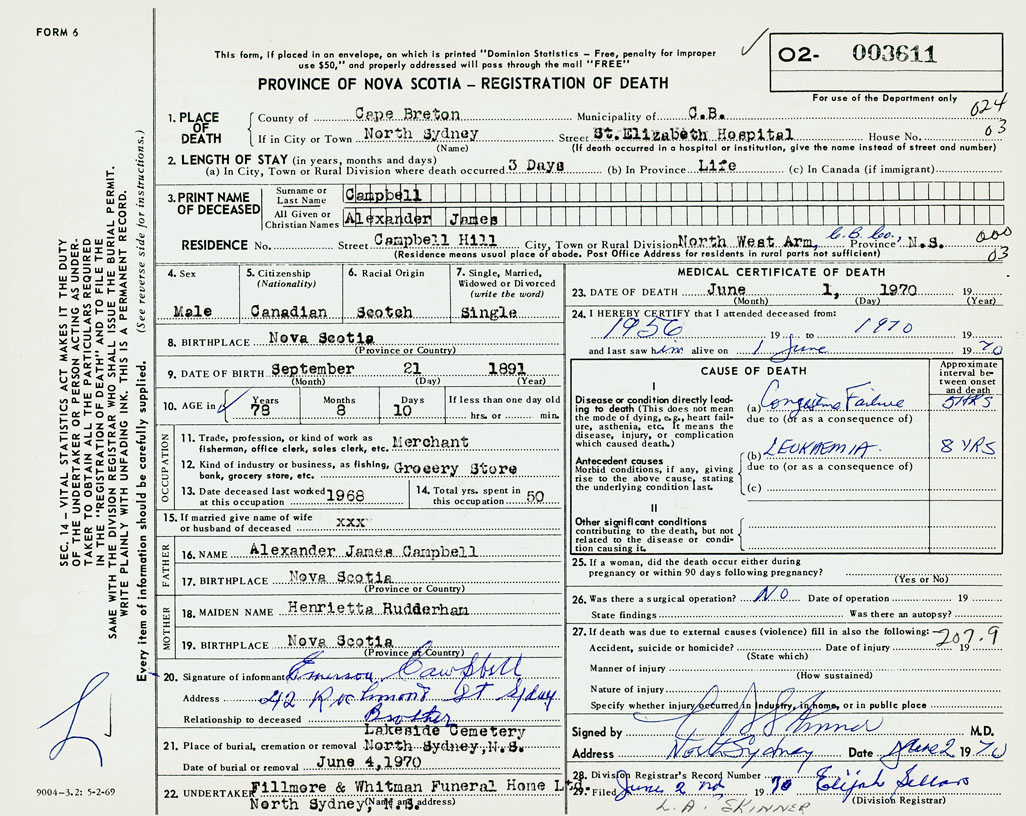 FORM 6
This form, if placed in an envelope, on which is printed "Dominion Statistics – Free, penalty for improper
use $50," and properly addressed will pass through the mail "FREE"
PROVINCE OF NOVA SCOTIA – REGISTRATION OF DEATH
02- 003611
For use of the Department only
024
03
1. PLACE OF DEATH
County of Cape Breton Municipality of C.B.
If in City or Town North Sydney Street St.Elizabeth Hospital House No.
(Name) (If death occurred in a hospital or institution, give the name instead of street and number)
2. LENGTH OF STAY (in years, months and days)
(a) In City, Town or Rural Division where death occurred 3 Days (b) In Province Life (c) In Canada (if immigrant)
3. PRINT NAME OF DECEASED
Surname or Last Name Campbell
All Given or Christian Names Alexander James
RESIDENCE No. Street Campbell Hill City, Town or Rural Division North West Arm, C.B. Co., Province N.S. 000
(Residence means usual place of abode. Post Office Address for residents in rural parts not sufficient) 03
4. Sex Male
5. Citizenship (Nationality) Canadian
6. Racial Origin Scotch
7. Single, Married, Widowed or Divorced (write the word) Single
8. BIRTHPLACE Nova Scotia
(Province or Country)
9. DATE OF BIRTH September 21 1891
(Month) (Day) (Year)
10. AGE in Years 78 Months 8 Days 10 If less than one day old hrs. or min.
OCCUPATION
11. Trade, profession, or kind of work as fisherman, office clerk, sales clerk, etc. Merchant
12. Kind of industry or business, as fishing, bank, grocery store, etc. Grocery Store
13. Date deceased last worked at this occupation 1968
14. Total yrs. spent in this occupation 50
15. If married give name of wife or husband of deceased xxx
FATHER
16. NAME Alexander James Campbell
17. BIRTHPLACE Nova Scotia
(Province or Country)
MOTHER
18. MAIDEN NAME Henrietta Rudderham
19. BIRTHPLACE Nova Scotia
(Province or Country)
20. Signature of informant Emerson Campbell
Address 42 Richmond St Sydney
Relationship to deceased Brother
21. Place of burial, cremation or removal Lakeside Cemetery
North Sydney,N.S.
Date of burial or removal June 4,1970
22. UNDERTAKER Fillmore & Whitman Funeral Home Ltd.
North Sydney, N.S.
(Name and address)
MEDICAL CERTIFICATE OF DEATH
23. DATE OF DEATH June 1, 1970 19
(Month) (Day) (Year)
24. I HEREBY CERTIFY that I attended deceased from:
1956 19 to 1970 19
and last saw him alive on 1 June 1970
CAUSE OF DEATH
Approximate interval between onset and death
I
Disease or condition directly leading to death (This does not mean the mode of dying, e.g., heart failure, asthenia, etc. It means the disease, injury, or complication which caused death.)
(a) Congestive Failure
due to (or as a consequence of)
Antecedent causes
Morbid conditions, if any, giving rise to the above cause, stating the underlying condition last.
(b) LEUKAEMIA 8 YRS
due to (or as a consequence of)
(c)
II
Other significant conditions
contributing to the death, but not related to the disease or condition causing it.
25. If a woman, did the death occur either during pregnancy or within 90 days following pregnancy?
(Yes or No)
26. Was there a surgical operation? No Date of operation 19
State findings Was there an autopsy?
27. If death was due to external causes (violence) fill in also the following: 207.9
Accident, suicide or homicide? Date of injury 19
(State which)
Manner of injury
(How sustained)
Nature of injury
Specify whether injury occurred in industry, in home, or in public place
Signed by L A Skinner M.D.
Address North Sydney Date June 2 1970
28. Division Registrar's Record Number
29. Filed June 2nd 1970 Elijah Sellars
(Division Registrar)
L. A. SKINNER
SEC. 14 – VITAL STATISTICS ACT MAKES IT THE DUTY
OF THE UNDERTAKER OR PERSON ACTING AS UNDER-
TAKER TO OBTAIN ALL THE PARTICULARS REQUIRED
IN THE "REGISTRATION OF DEATH" AND TO FILE THE
SAME WITH THE DIVISION REGISTRAR WHO SHALL ISSUE THE BURIAL PERMIT.
WRITE PLAINLY WITH UNFADING INK. THIS IS A PERMANENT RECORD.
Every item of information should be carefully supplied. (See reverse side for instructions.)
9004-3.2: 5-2-69